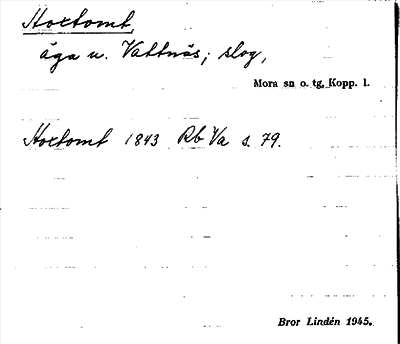 Hoxtomt,
äga u. Vattnäs; slog,
Mora sn o. tg, Kopp. l.
Hoxtomt 1843 Rb Va s. 79.
Bror Lindén 1945.